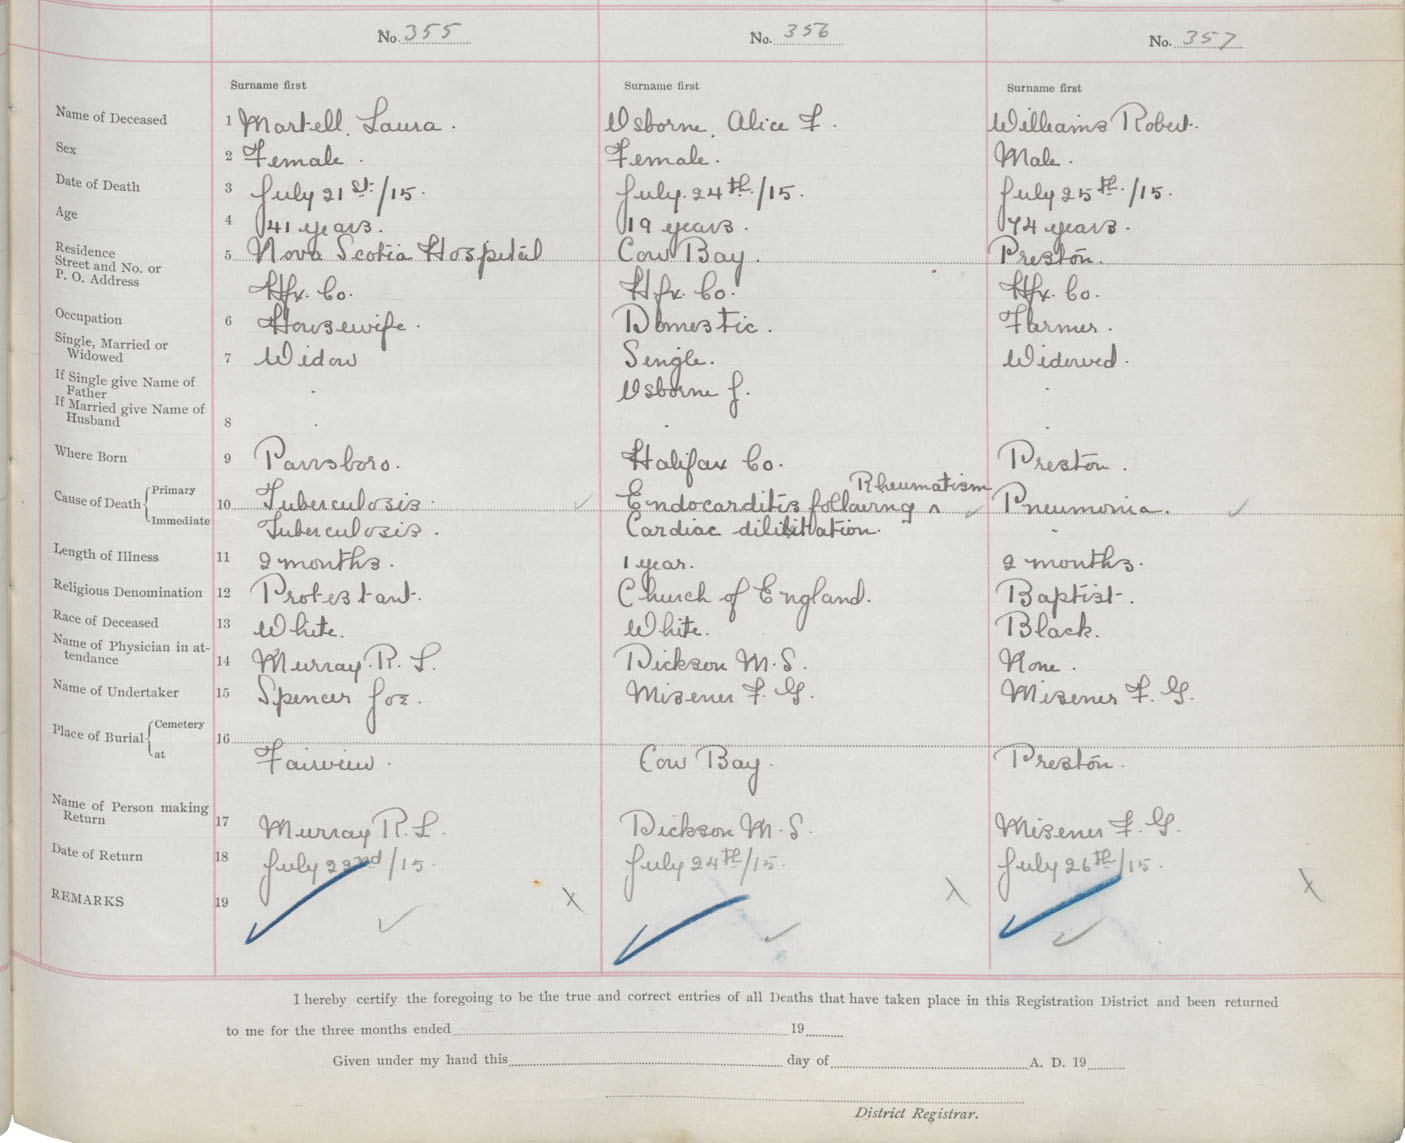 No. 355 No. 356 No. 357
Surname first Surname first Surname first
Name of Deceased 1 Martell, Laura. Osborne, Alice F. Williams Robert.
Sex 2 Female. Female. Male.
Date of Death 3 July 21st/15. July 24th/15. July 25th/15.
Age 4 41 years. 19 years. 74 years.
Residence
Street and No. or 5 Nova Scotia Hospital Cow Bay. Preston.
P. O. Address Hfx. Co. Hfx. Co. Hfx. Co.
Occupation 6 Housewife. Domestic. Farmer.
Single, Married or
Widowed 7 Widow Single. Widowed.
If Single give Name of
Father Osborne J.
If Married give Name of
Husband 8
Where Born 9 Parrsboro. Halifax Co. Preston.
Rheumatism
Cause of Death { Primary 10 Tuberculosis. Endocarditis following ^ Pneumonia.
Immediate Tuberculosis. Cardiac
Length of Illness 11 2 months. 1 year. 2 months.
Religious Denomination 12 Protestant. Church of England. Baptist.
Race of Deceased 13 White. White. Black.
Name of Physician in at-
tendance 14 Murray. R. L. Dickson M. S. None.
Name of Undertaker 15 Spencer Joe. Misener F. G. Misener F. G.
Place of Burial { Cemetery 16
at Fairview. Cow Bay. Preston.
Name of Person making
Return 17 Murray R. L. Dickson M. S. Misener F. G.
Date of Return 18 July 22nd/15. July 24th/15. July 26th/15.
REMARKS 19
I hereby certify the foregoing to be the true and correct entries of all Deaths that have taken place in this Registration District and been returned
to me for the three months ended 19
Given under my hand this day of A. D. 19
District Registrar.